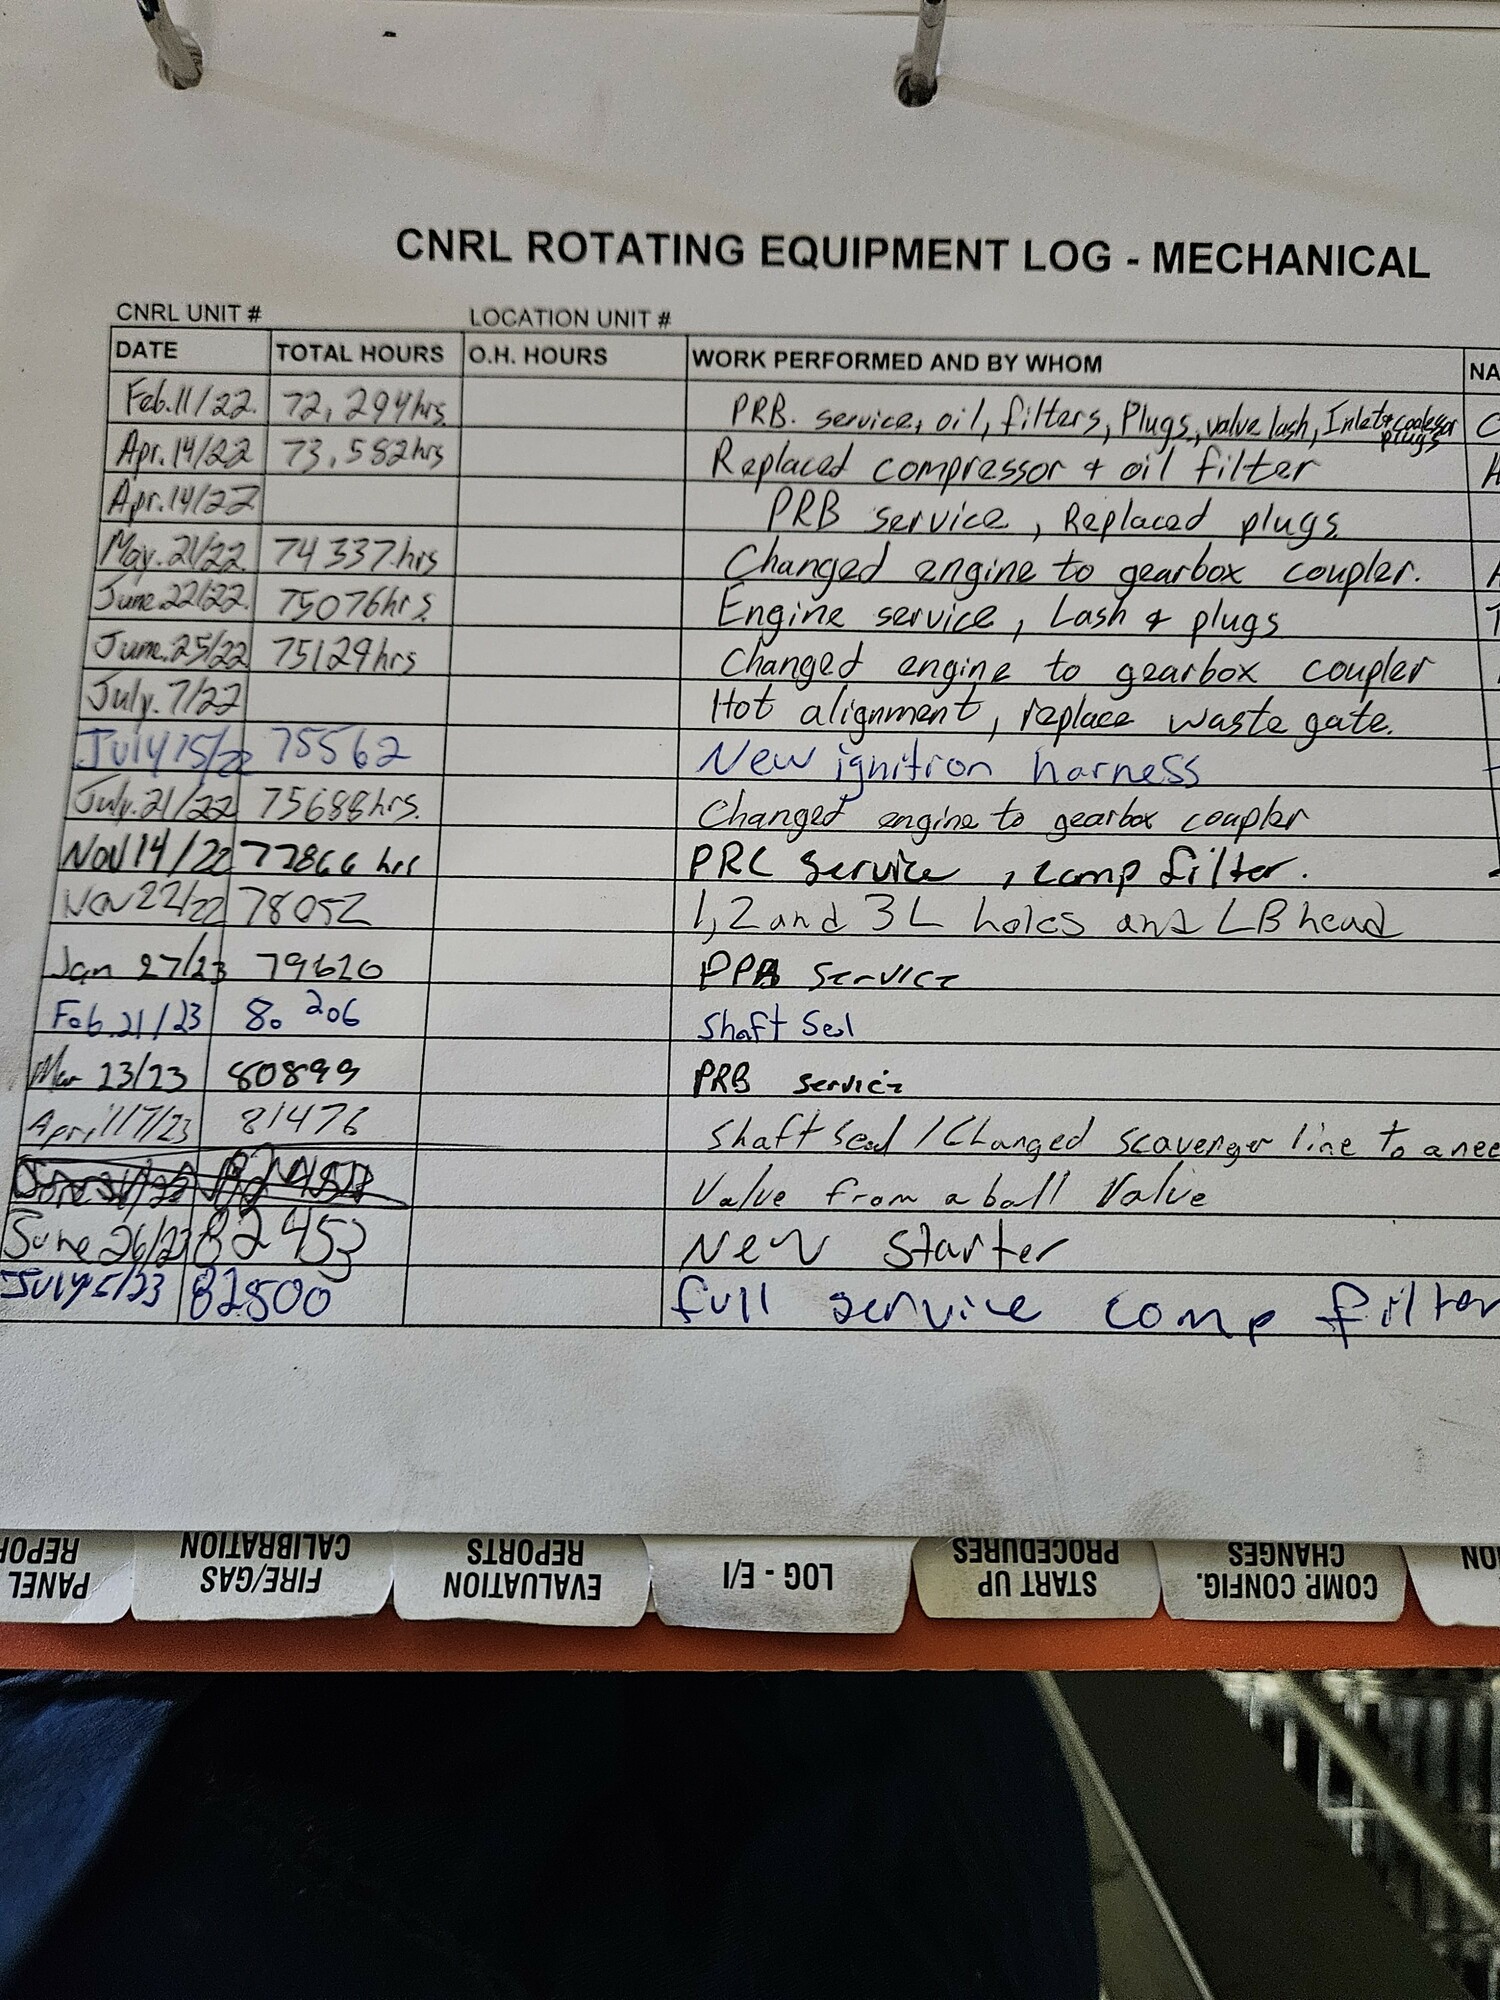 CNRL ROTATING EQUIPMENT LOG - MECHANICAL
CNRL UNIT # LOCATION UNIT #
DATE TOTAL HOURS O.H. HOURS WORK PERFORMED AND BY WHOM NA
Feb.11/22. 72,294hrs. PRB. service, oil, filters, Plugs, valve lash, Inlet + coalesor plugs C
Apr.14/22 73,582hrs Replaced compressor + oil filter
Apr.14/22 PRB service, Replaced plugs.
May.21/22. 74337hrs Changed engine to gearbox coupler.
June.22/22. 75076hrs. Engine service, Lash & plugs
June.25/22 75129hrs Changed engine to gearbox coupler
July.7/22 Hot alignment, replace waste gate.
July15/22 75562 New ignition harness
July.21/22 75688hrs. Changed engine to gearbox coupler
Nov14/22 77866 hrs PRC Service, comp filter.
Nov22/22 78052 1,2 and 3L holes and LB head
Jan 27/23 79620 service
Feb.21/23 80.206 Shaft Seal
Mar 23/23 80899 PRB service
April17/23 81476 Shaft Seal / Changed scavenger line to a nee
Valve from a ball Valve
June 26/23 82453 New Starter
July5/23 82500 full service comp filter
PANEL REPOR
FIRE/GAS CALIBRATION
EVALUATION REPORTS
LOG - E/I
START UP PROCEDURES
COMP. CONFIG. CHANGES
ON